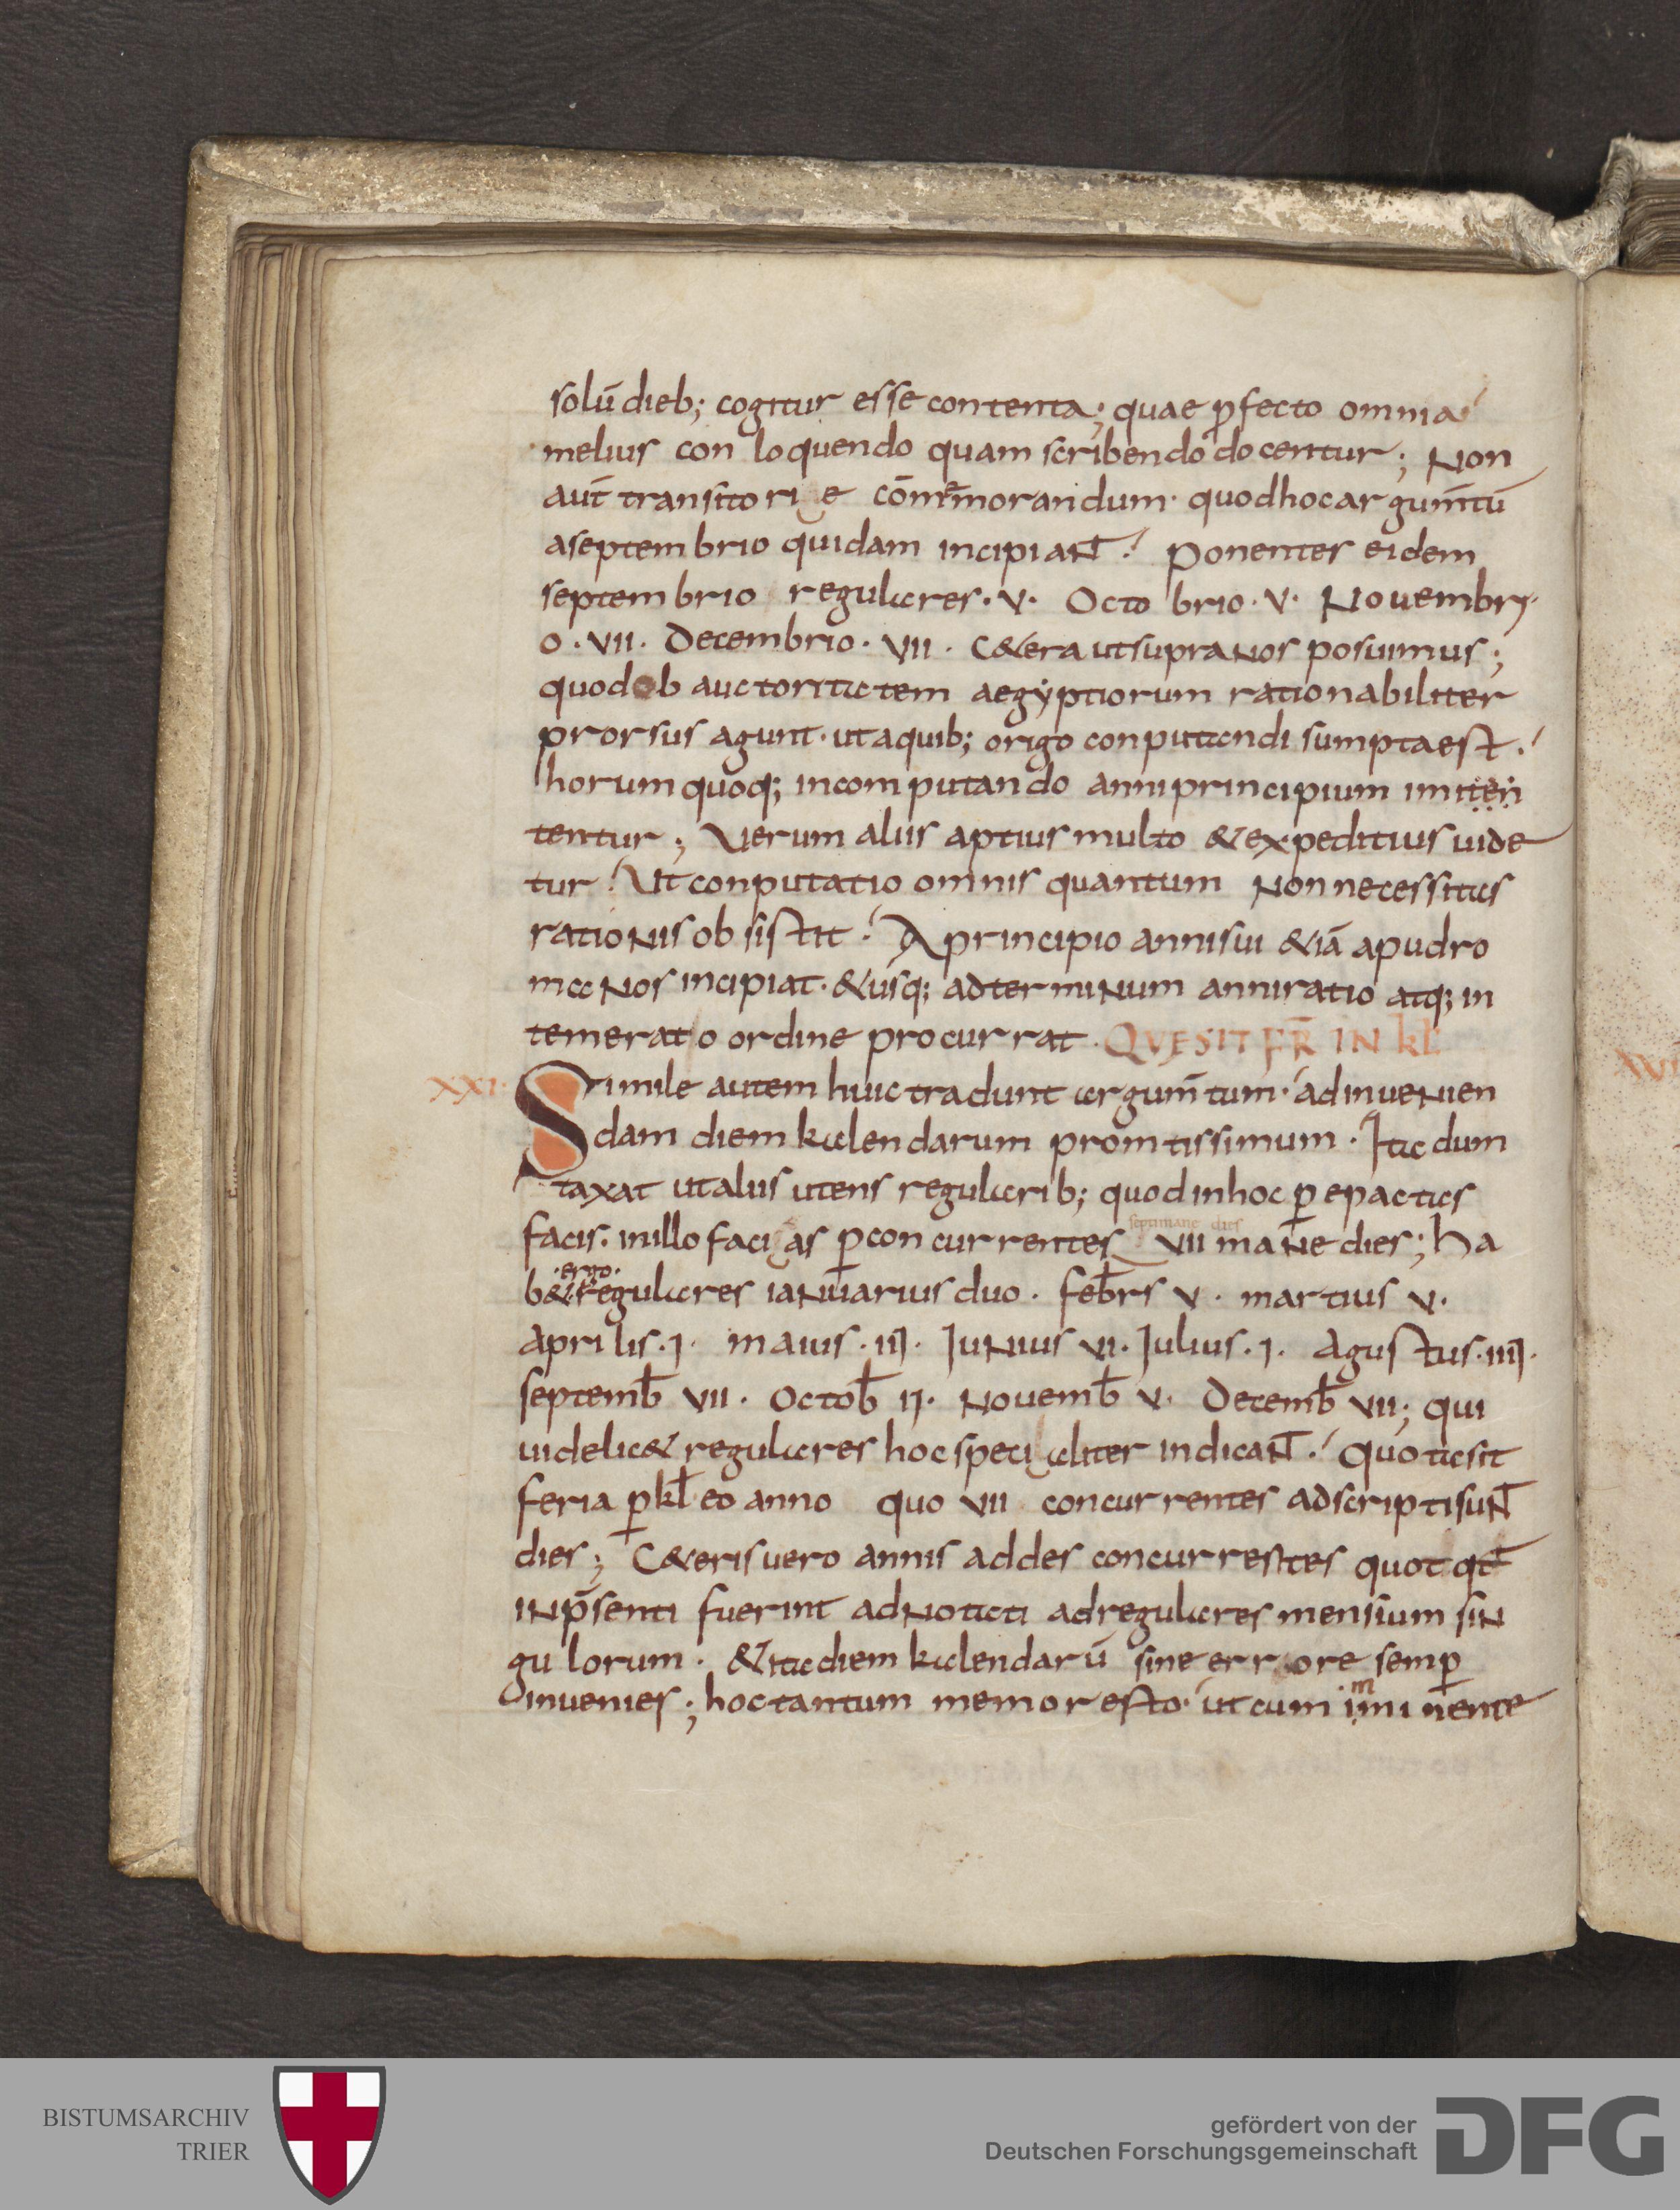 solū dieb; cogitur esse contenta; quae ꝑfecto omnia
melius conloquendo quam scribendo docentur; Non
aut̄ transitorie cōmemorandum· quod hoc argum̄tū
a septembrio quidam incipiant. Ponentes eidem
septembrio regulares·V· Octobrio·V· Novembri
o·VII· Decembrio·VII· C&era ut supra nos posuimus;
quod ob auctoritatem aegẏptiorum rationabiliter
prorsus agunt· ut a quib; origo conputandi sumpta est.
horum quoq; in computando anni principium imiten
tentur; Verum aliis aptius multo & expeditius uide
tur. Ut conputatio omnis quantum non necessitas
rationis obsistit. A principio anni sui &iā apud ro
manos incipiat· & usq; ad terminum anni ratio atq; in
temerato ordine procurrat· QVE SIT FR̄ IN kł
XXI· Simile autem huic tradunt argum̄tum· ad inuenien
dam diem kalendarum promtissimum· Ita dum
taxat ut aliis utens regularib; quod in hoc ꝑ epactas
facis· in illo facias ꝑ concurrentes septimane dies VII mane dies; Ha
b& ·ergo· regulares ianuarius duo· feb̄rs V· martius V·
Aprilis·I· maius·III· Iunius VI· Iulius·I· Agustus·IIII·
septemb̄ VII· Octob̄ II· Novemb̄ V· Decemb̄ VII; qui
uidelic& regulares hoc specialiter indicant. Quota sit
feria ꝑ kł eo anno quo VII concurrentes adscripti sunt
dies; C&eris uero annis addes concurrestes quotqt̄
in p̄senti fuerint adnotati ad regulares mensium sin
gulorum· & ita diem kalendarū sine errore semꝑ
inuenies; hoc tantum memor esto· ut cum imminente
BISTUMSARCHIV
TRIER
gefördert von der
Deutschen Forschungsgemeinschaft
DFG